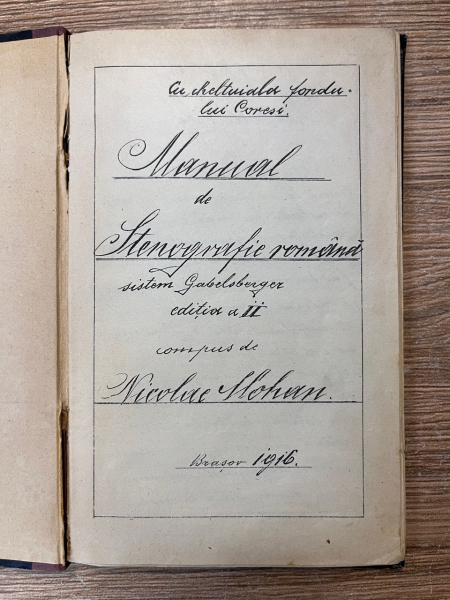 Cu cheltuiala fondu-
lui Coresi.
Manual
de
Stenografie română
sistem Gabelsberger
ediția a II
compus de
Nicolae Mohan.
Brașov 1916.